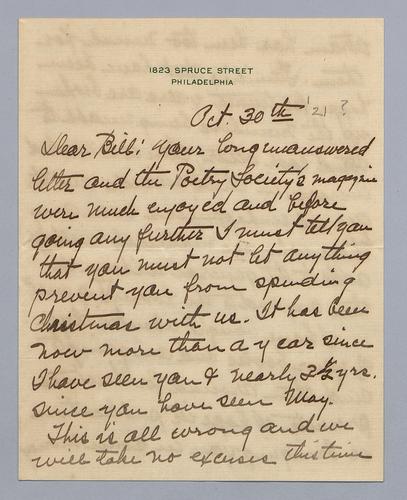 1823 SPRUCE STREET
PHILADELPHIA
Oct. 30th '21 ?
Dear Bill: your long unanswered
letter and the Poetry Society's magazine
were much enjoyed and before
going any further I must tell you
that you must not let anything
prevent you from spending
Christmas with us. It has been
now more than a year since
I have seen you & nearly 3½ yrs.
since you have seen May.
This is all wrong and we
will take no excuses this time